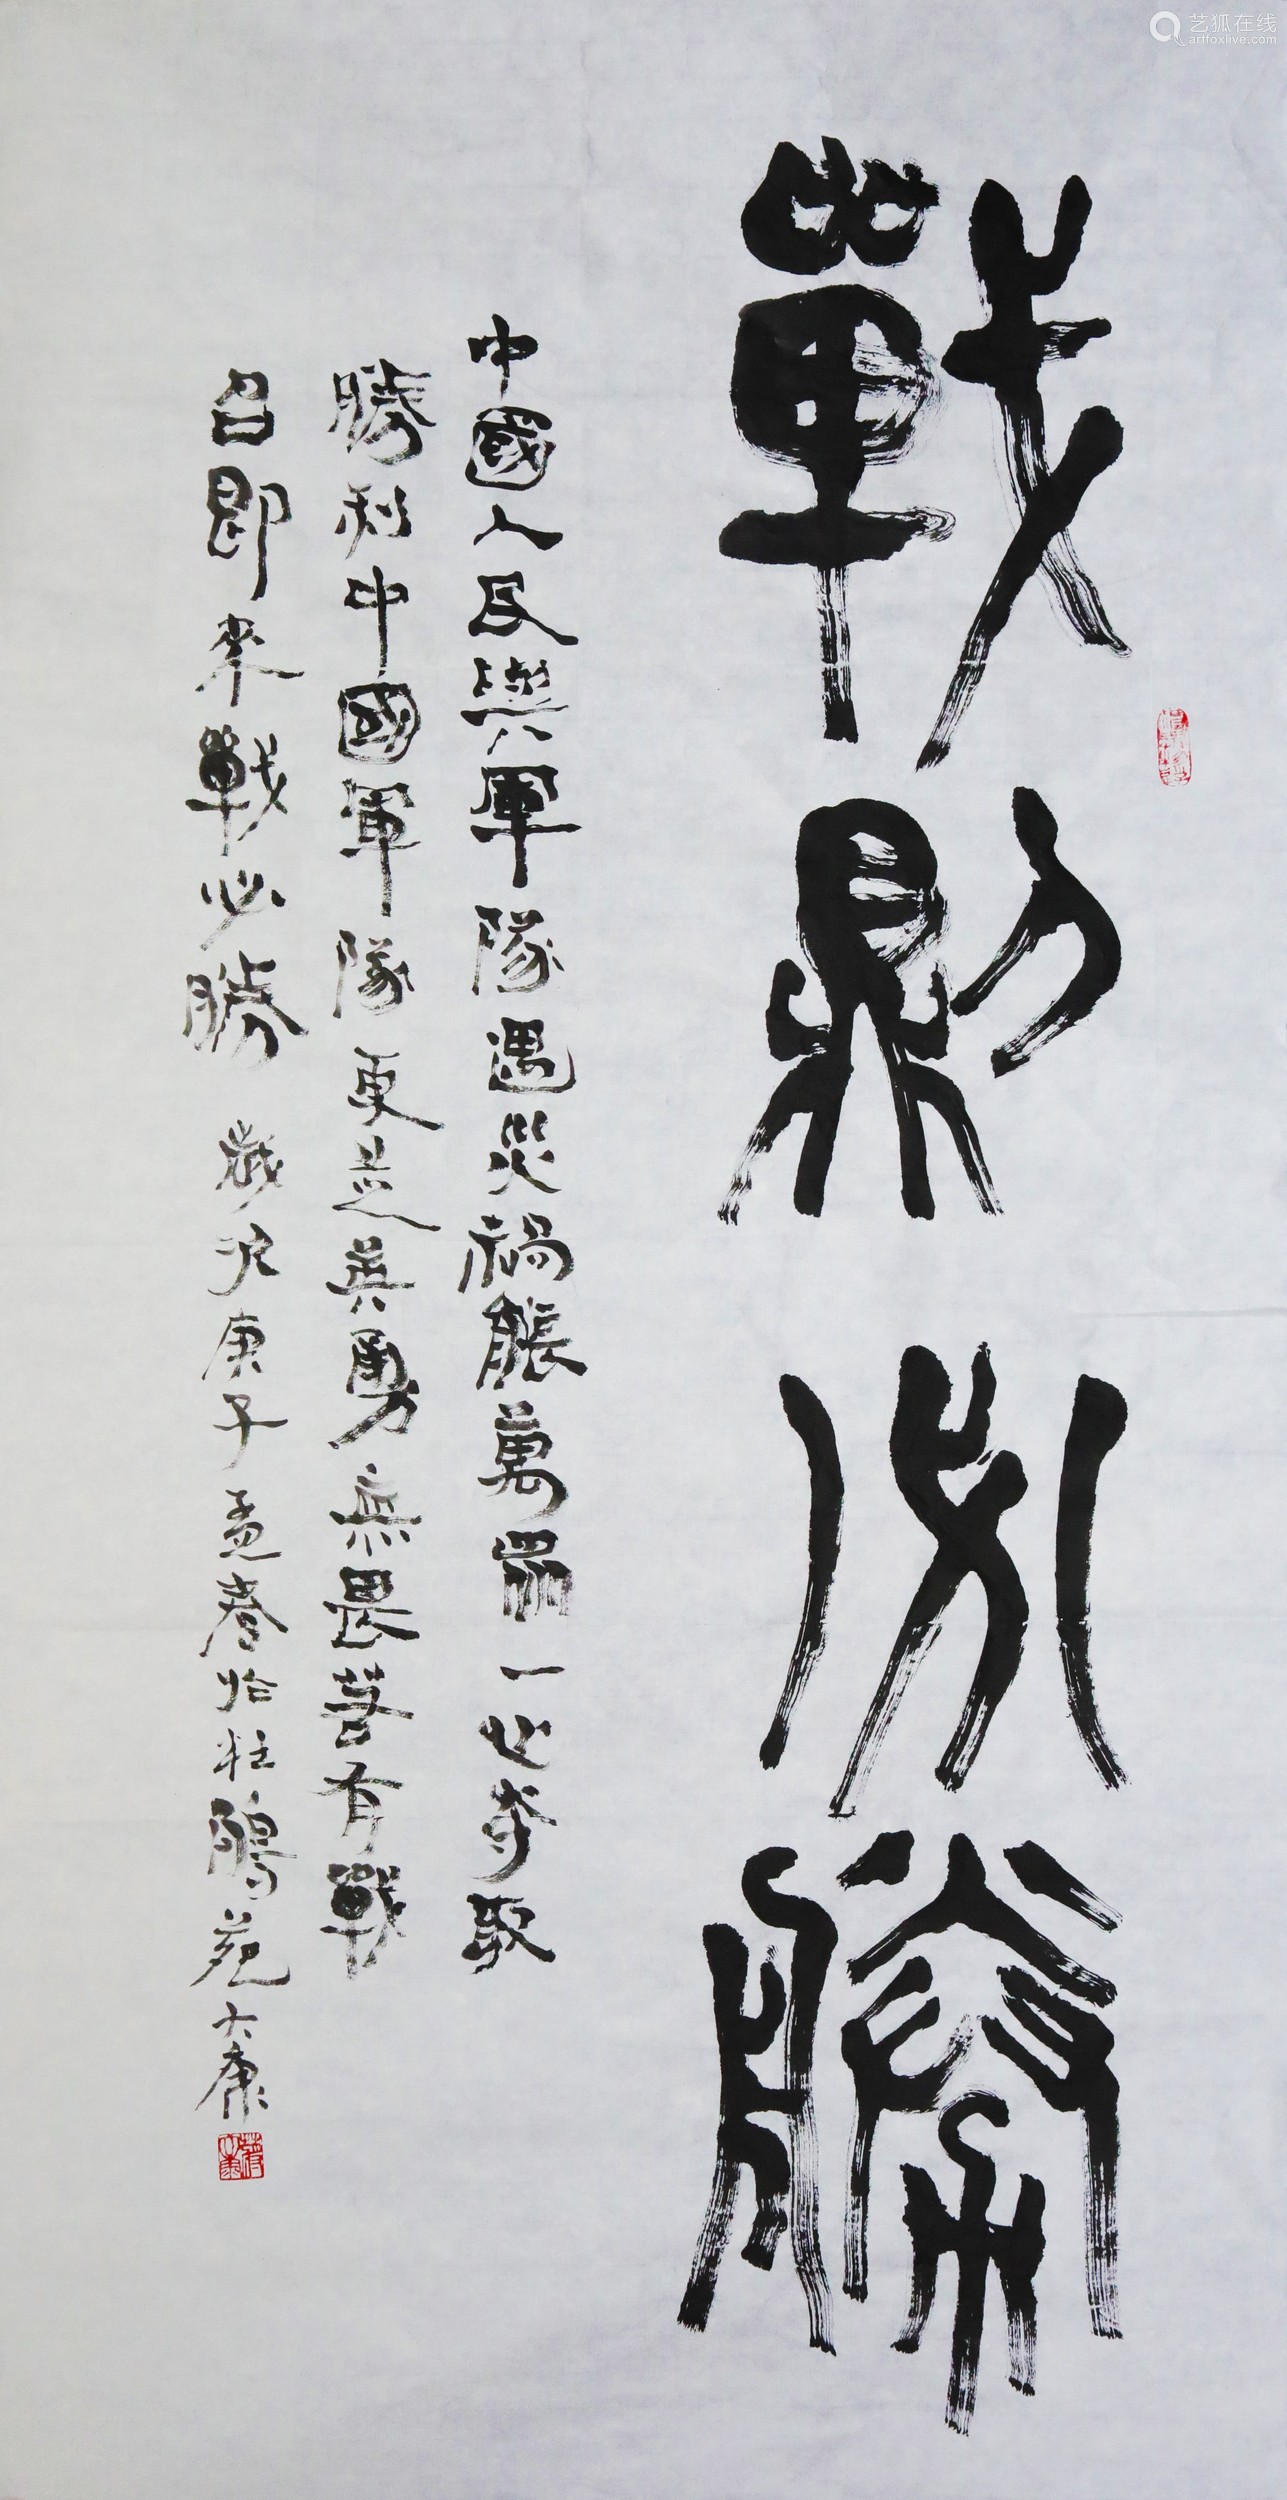 戰則必勝
中國人民與軍隊遇災禍能萬眾一心奪取
勝利中國軍隊更是英勇無畏若有戰
召即來戰必勝 歲次庚子孟春於鵬苑大康
艺狐在线
artfoxlive.com